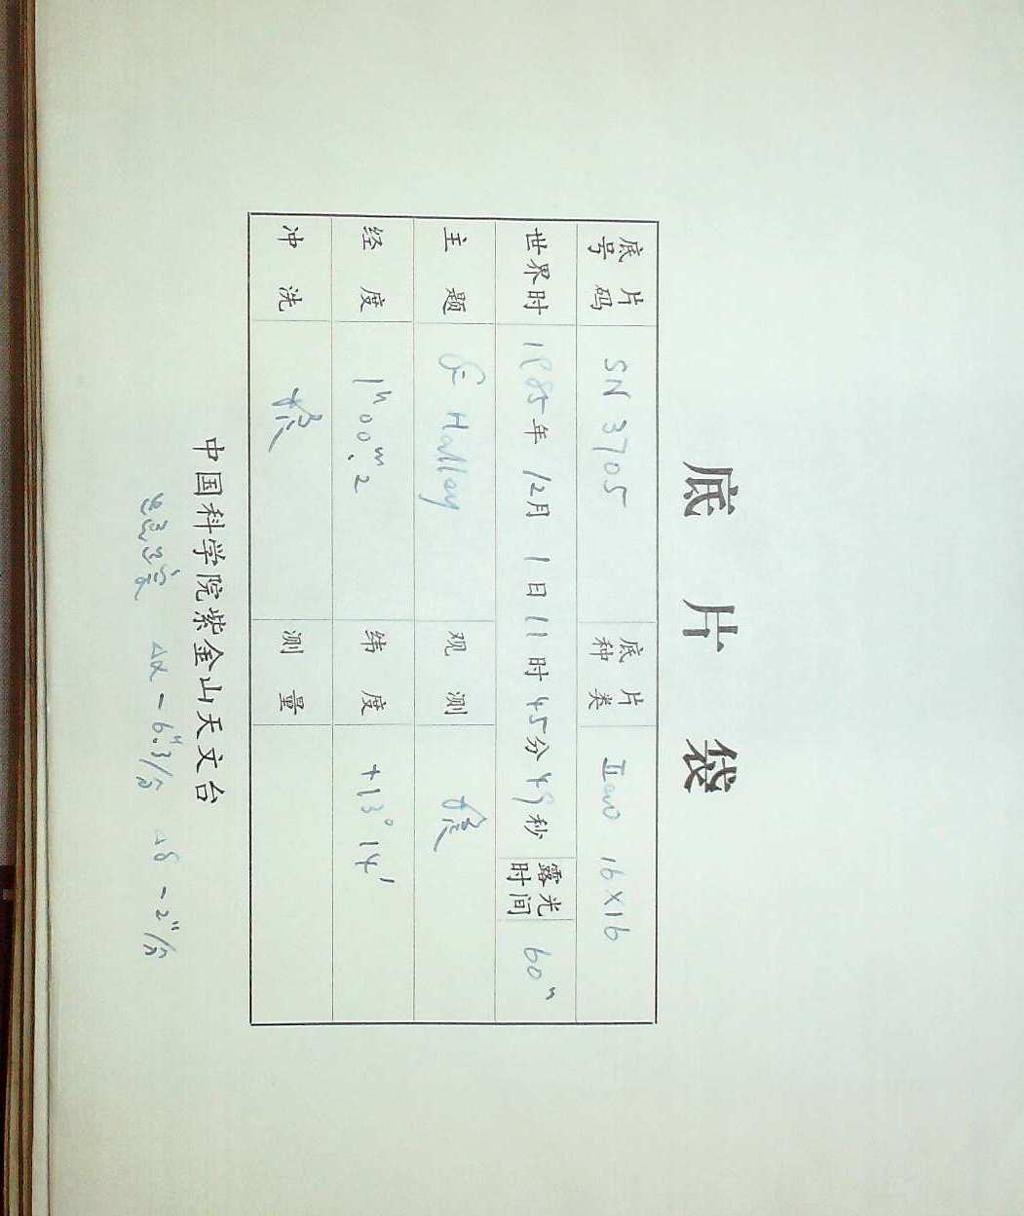 底片袋
底片号码 SN 3705 底片种类 IIaO 16×16
世界时 1985年 12月 1日 11时 45分 49秒 露光时间 60"
主题 Halley 观测
经度 1ʰ00ᵐ.2 纬度 +13° 14′
冲洗 测量
中国科学院紫金山天文台
Δα -6".3/分 Δδ -2"/分